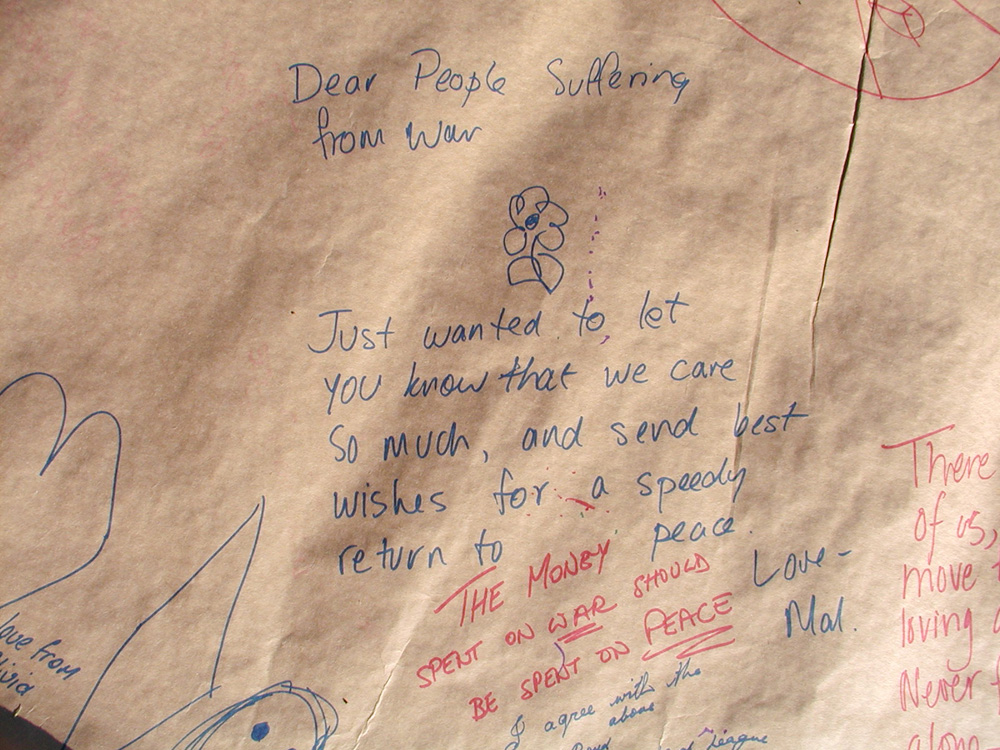 Dear People Suffering
from War
Just wanted to let
you know that we care
So much, and send best
wishes for a speedy
return to peace.
Love-
Mal.
THE MONEY
SPENT ON WAR SHOULD
BE SPENT ON PEACE
I agree with the
above
love from
There
of us,
move
loving
Never